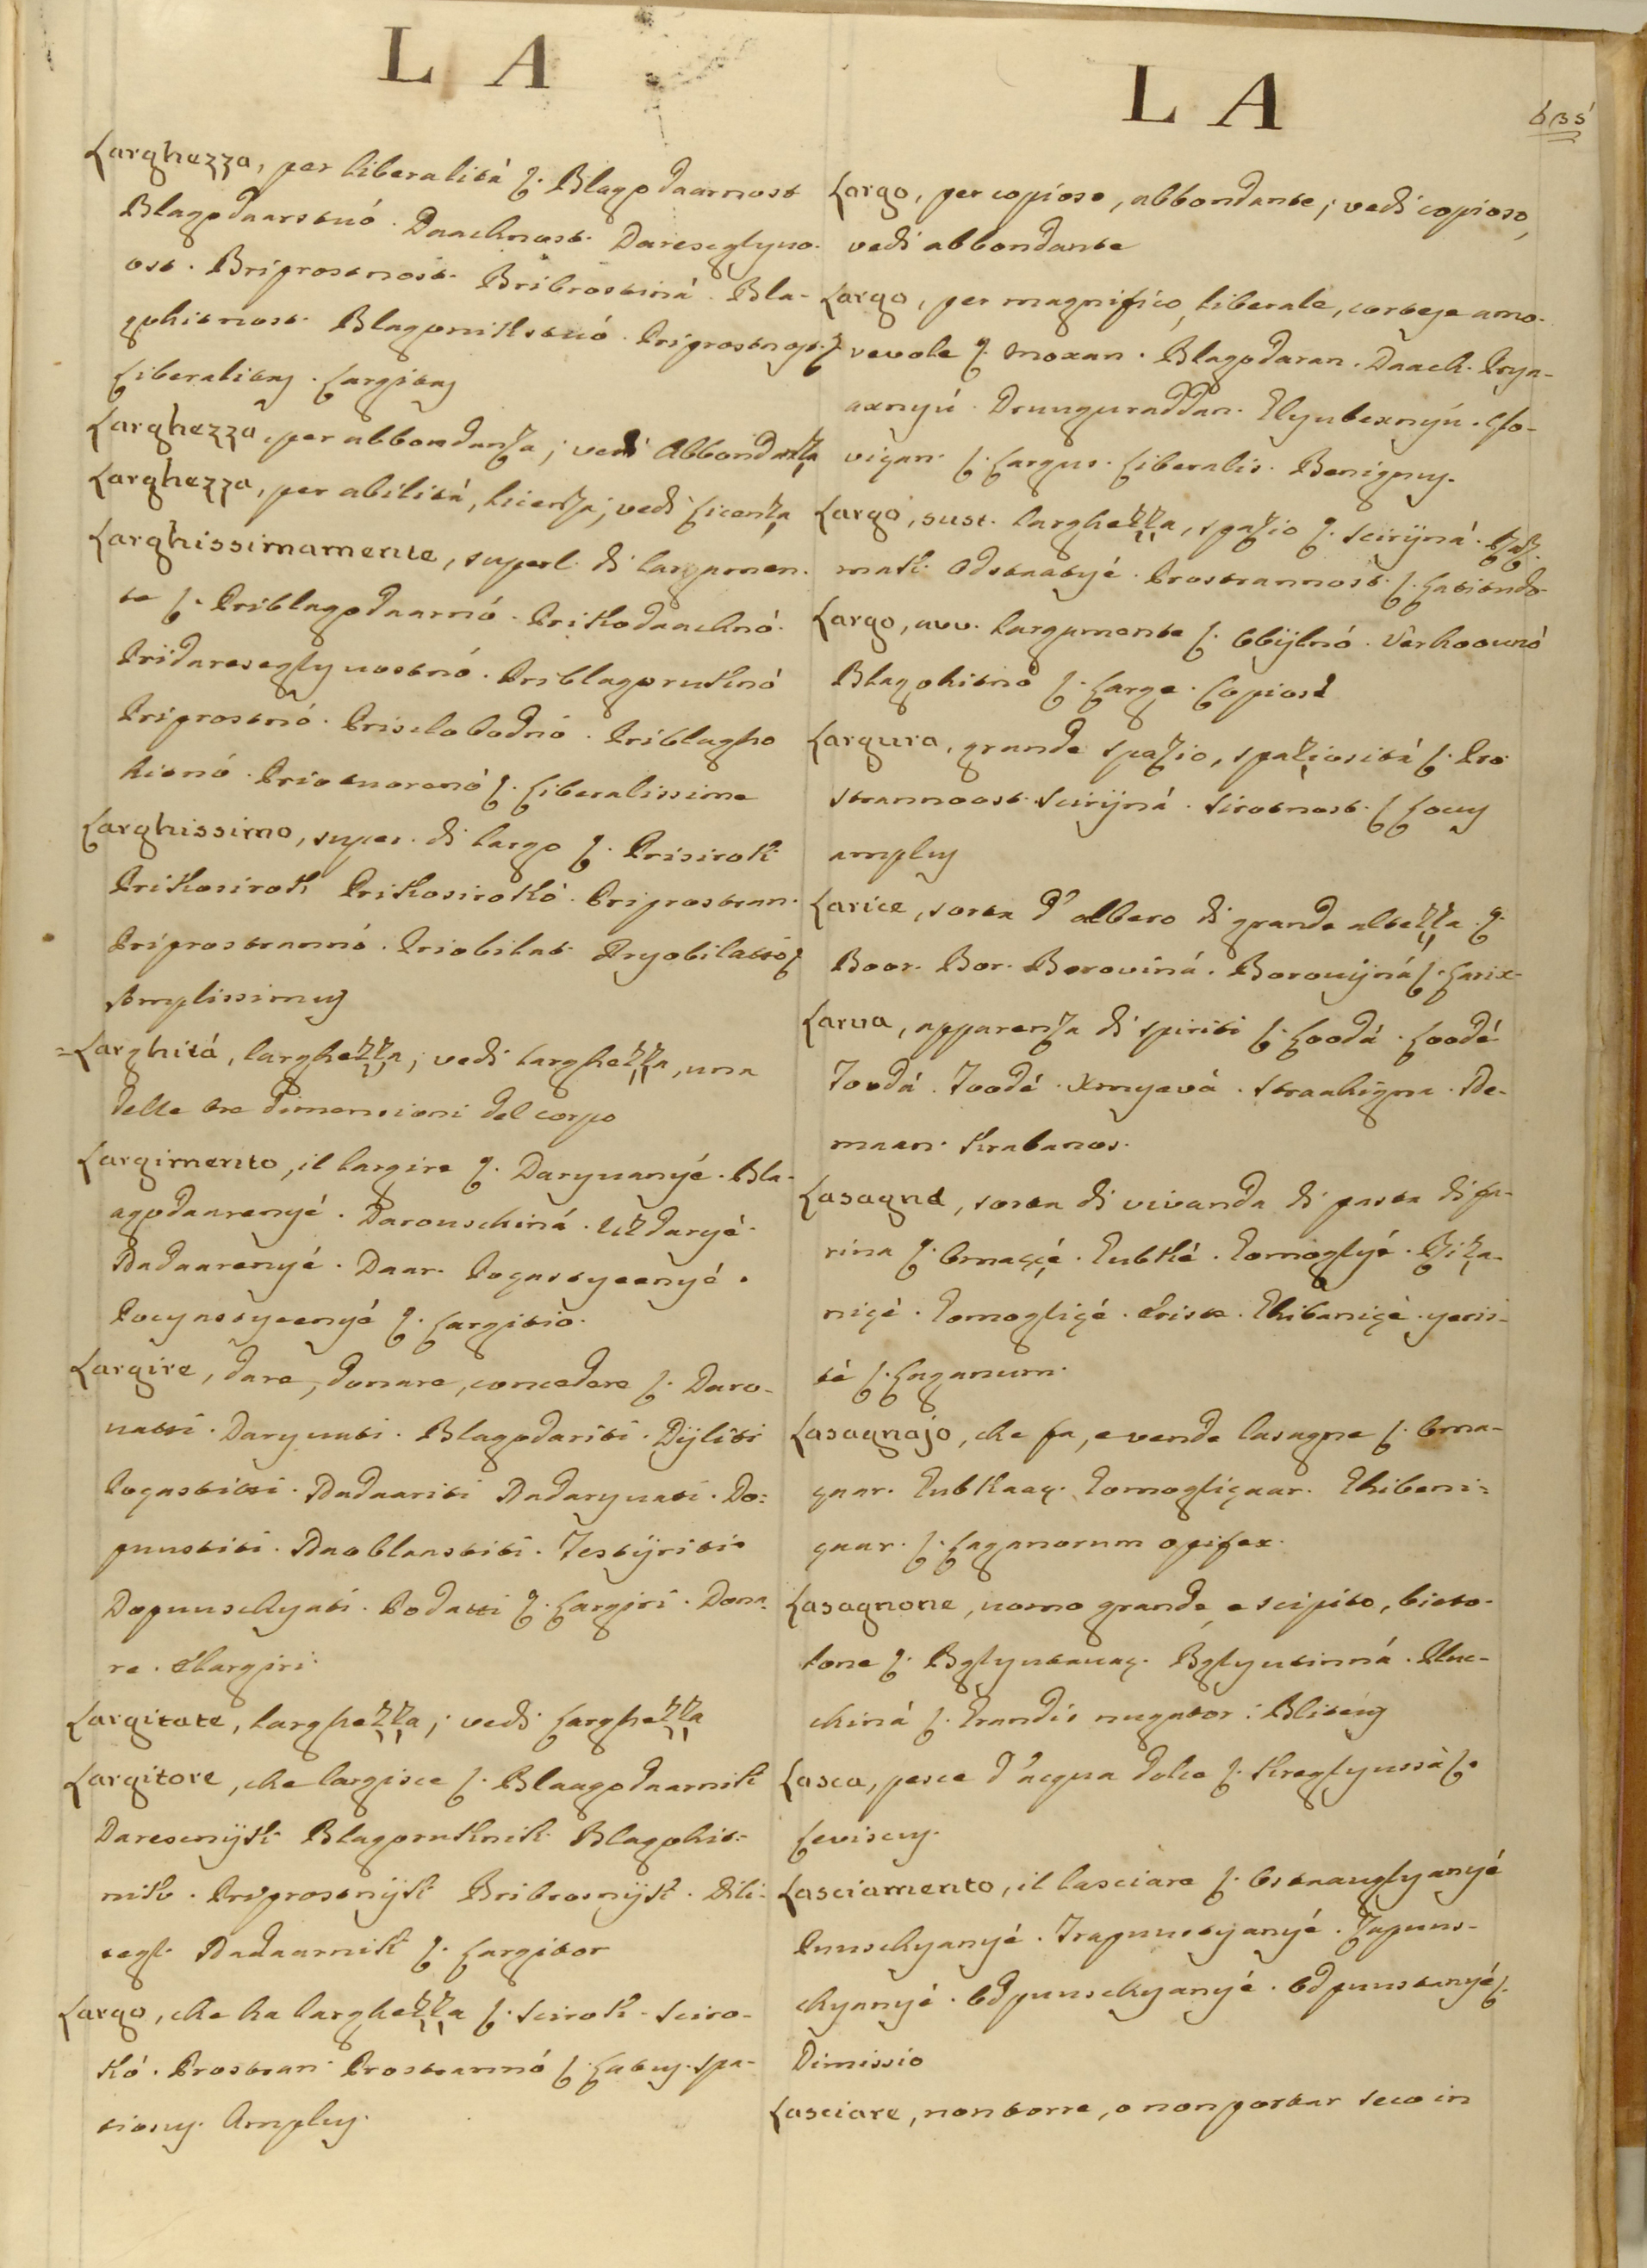 L A
Larghezza, per liberalitá ſ. Blagodaarnost
Blagodaarstuó. Daachnost. Daresegljuo-
ost. Priprostnost. Pribrostiná. Bla-
gohitnost. Blagonikstuó. Priprostnost. ſ.
Liberalitas. Largitas
Larghezza, per abbondanza; vedi Abbondanza
Larghezza, per abilitá, licenza; vedi Licenza
Larghissimamente, superl. di largamen-
te ſ. Priblagodaarnó. Prikodaachnó.
Pridaresegljuostnó. Priblagoruknó
Priprostnó. Prislobodnó. Priblagho
hitnó. Priotuorenó ſ. Liberalissime
Larghissimo, super. di largo ſ. Prisirok.
Prikosirok Prikosirokó. Priprostran.
Priprostrannó. Priobilat. Pryobilattó ſ.
Amplissimus
Larghitá, larghezza; vedi larghezza, una
delle tre dimensioni del corpo
Largimento, il largire ſ. Daryuanyé. Bla-
agodaarenyé. Darouschiná. Uzdaryé.
Nadaarenyé. Daar. Poçastyeenyé.
Pocyastyeenyé ſ. Largitio.
Largire, dare, donare, concedere ſ. Daro-
uatti. Daryuati. Blagodariti. Dÿliti
Poçastitti. Nadaariti Nadaryuati. Do-
puustiti. Naoblaastiti. Testÿriti.
Dopuuschyati. Podatti ſ. Largiri. Dona-
re. Elargiri.
Largitate, larghezza; vedi Larghezza
Largitore, che largisce ſ. Blaagodaarnik
Daresenÿk. Blagoruknik. Blagohit-
nik. Priprostnÿk Pribrosnÿk. Dili-
tegl. Nadaarnik ſ. Largitor
Largo, che ha larghezza ſ. Scirok. Sciro-
kó. Prostran. Prostrannó ſ. Latus. Spa-
tiosus. Amplus.
L A
635
Largo, per copioso, abbondante; vedi copioso,
vedi abbondante
Largo, per magnifico, liberale, cortese amo-
revole ſ. Moxan. Blagodaran. Daach. Prya-
axnyú. Drunguraddan. Elyubexnyú.
viçan. ſ. Largus. Liberalis. Benignus.
Largo, sust. larghezza, spazio ſ. Scirÿná.
mak. Odstaatyé. Prostrannost. ſ. Latitudo.
Largo, avv. largamente ſ. Obÿlnó. Vàrhoounó
Blagohitnó ſ. Large. Copiosé
Largura, grande spazio, spaziositá ſ. Pro-
strannoost. Scirÿná. Sirotnost. ſ. Locus
amplus
Larice, sorta d' albero di grande altezza. ſ.
Boor. Bor. Boroviná. Borouÿná ſ. Larix.
Larua, apparenza di spiriti ſ. Loodá. Loodé
Joodá. Joodé. Xmyavá. Straahigna. Ne-
maan. Krabanos.
Lasagne, sorta di vivanda di pasta di fa-
rina ſ. Omaççé. Eubké. Eomoglyé.
niçé. Eomogliçé. Ehibaniçé.
té ſ. Laganum.
Lasagnajo, che fa, e vende lasagne ſ. Oma-
çaar. Eubkaaç. Eomogliçaar. Ehibani-
çaar. ſ. Laganorum opifex.
Lasagnone, uomo grande, e scipito, bieto-
lone ſ. Bglyutauaç. Bglyutinná.
chiná ſ. Grandis nugator: Bliteus
Lasca, pesce d'acqua dolce ſ. Kreglyussà ſ.
Leviscus.
Lasciamento, il lasciare ſ. Ostauuglyanyé
Puuschyanyé. Trapuustyanyé. Zapuus-
chyanyé. Odpuuschyanyé. Odpuustanyé ſ.
Dimissio
Lasciare, non torre, o non portar seco in